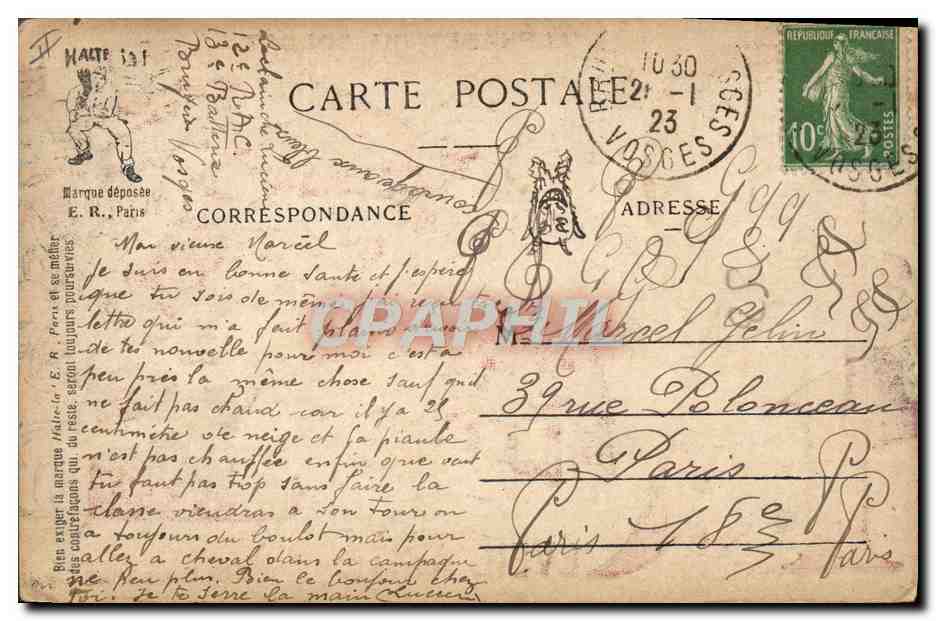 HALTE LA!
Marque déposée
E. R., Paris
Bien exiger la marque Halte-là ! E. R. Paris et se méfier
des contrefaçons qui, du reste, seront toujours poursuivies
12e R.A.C.
13e Batterie
Vosges
CARTE POSTALE
CORRESPONDANCE
ADRESSE
REPUBLIQUE FRANÇAISE
10c
POSTES
10 30
21 -1
23
VOSGES
Mon vieux Marcel
Je suis en bonne sante et j'espère
que tu sois de même j'ai
lettre qui m'a fait plaisir
de tes nouvelle pour moi c'est a
peu près la même chose sauf qu'il
ne fait pas chaud car il y a 25
centimètre de neige et la piaule
n'est pas chauffée enfin que veut
tu faut pas trop s'en faire la
classe viendras a son tour on
a toujours du boulot mais pour
allez a cheval dans la campagne
ne peu plus. Bien le bonjour chez
toi. Je te serre la main Lucien
Marcel Gelin
39 rue Polonceau
Paris
Paris 18e Paris
CPAPHIL